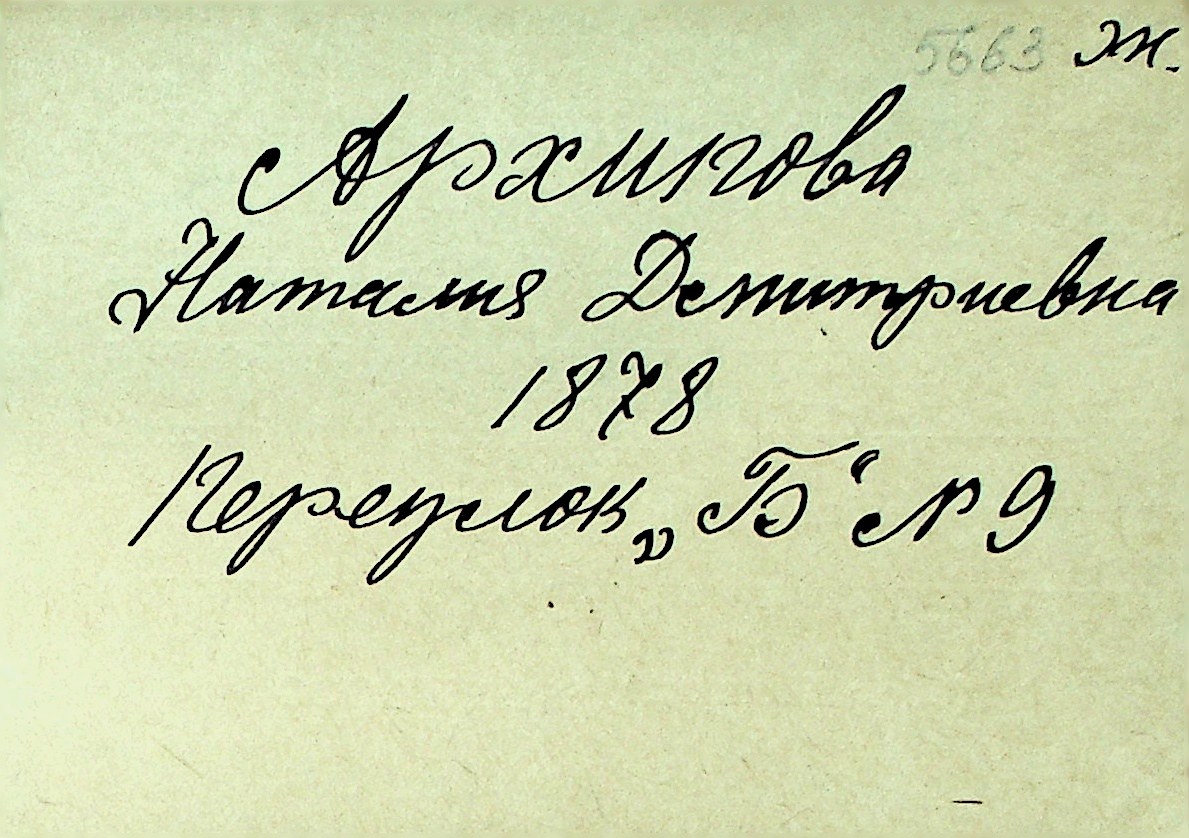 5663 ж.
Архипова
Наталия Демитриевна
1878
Переулок „Б“ № 9